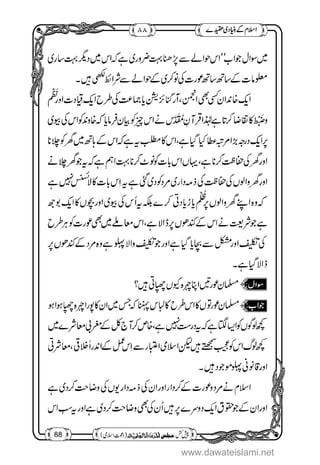 اسلام کے بنیادی عقیدے
۸۸
میں سوال جواب“ اس حوالے سے پڑھنا بہت ضروری ہے کہ اس میں دیگر بہت ساری
معلومات کے ساتھ ساتھ عورت کی نوکری کے حوالے سے شرائط بھی لکھی ہیں۔
خاندان کسی بھی انجمن، آرگنائزیشن یا جماعت کی طرح ایک قیادت اور مُنَظَّم
و مضبوط
کا تقاضا کرتا ہے لہٰذا قرآنِ مُقَدَّس نے اس چیز کو یوں بیان فرمایا کہ خاوند کو اس کی بیوی
پر ایک درجہ بڑا مرتبہ عطا کیا گیا ہے، اس کا یہ مطلب ہے کہ اس کے ہاتھ میں گھر کو چلانا
اور گھر کی حفاظت کرنا ہے، یہاں اس بات کو نوٹ کرنا بہت اہم ہے کہ یہ جو گھر چلانے
اور گھر والوں کی حفاظت کی ذمہ داری مرد کو دی گئی ہے یہ اس بات کا لائسنس نہیں ہے
کہ وہ اپنے گھر والوں پر ظلم و زیادتی کرے بلکہ اُس کی بیوی اور بچوں کا ایک بوجھ
ہے جو شریعت نے اس کے کندھوں پر ڈالا ہے، اس معاملے میں بھی عورت کو ہر طرح
کی تکلیف اور مشکل سے بچایا گیا ہے اور جو تکلیف والا پہلو ہے وہ مرد کے کندھوں پر
ڈالا گیا ہے۔
سوال مسلمان عورتیں اپنا چہرہ کیوں چھپاتی ہیں؟
جواب مسلمان عورتوں کا اس طرح کا لباس پہننا کہ جس میں ان کا پورا چہرہ چھپا ہوا ہو
کچھ لوگوں کو ایسا لگتا ہے کہ یہ درست نہیں ہے، خاص کر آج کل کے مغربی معاشرے میں
کچھ لوگ اس کو عجیب سمجھتے ہیں لیکن اسلامی اعتبار سے اس عمل کے اندر اخلاقی، معاشرتی
اور قانونی پہلو موجود ہیں۔
اسلام نے مرد و عورت کے کردار اور ان کی ذمہ داریوں کی وضاحت کر دی ہے
اور ان کے جو حقوق ایک دوسرے پر ہیں اُن کی بھی وضاحت کر دی ہے اور یہ سب اس
پیش کش مجلس المدینۃ العلمیۃ (دعوتِ اسلامی)
88
www.dawateislami.net